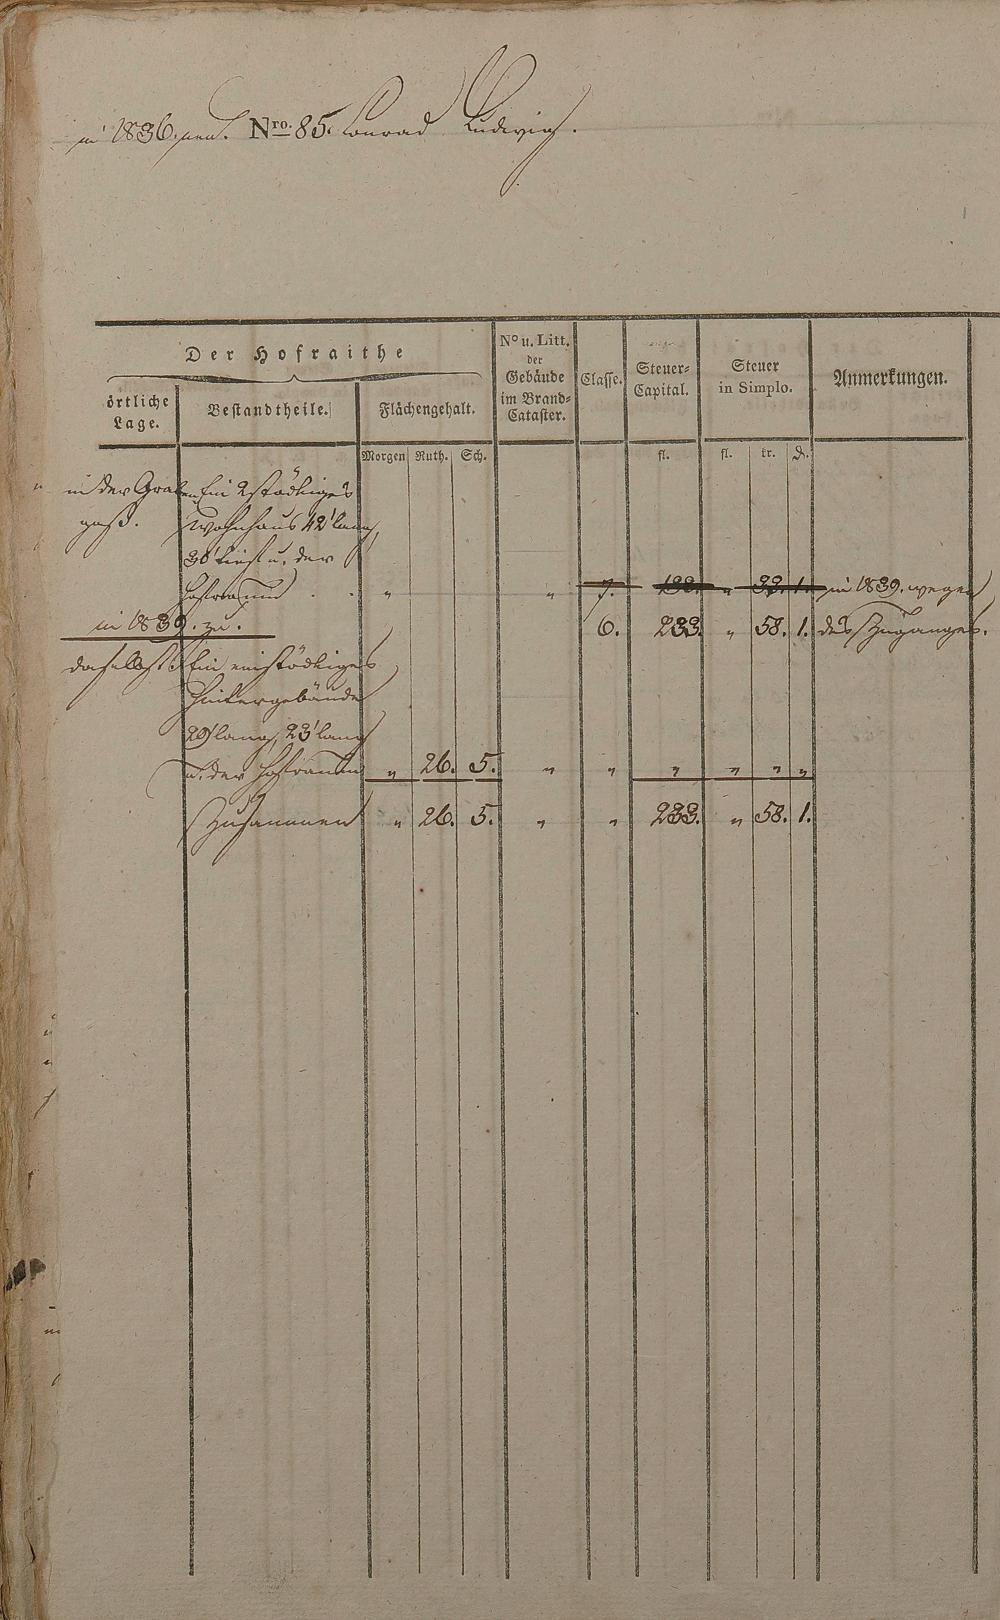 in 1836. neu. Nro. 85. Conrad Ludwig.
Der Hofraithe
örtliche Lage.
Bestandtheile.
Flächengehalt.
Nº u. Litt. der Gebäude im Brand-Cataster.
Classe.
Steuer-Capital.
Steuer in Simplo.
Anmerkungen.
Morgen Ruth. Sch. fl. fl. kr. d.
in der Graben Ein 2stöckiges
gaß. Wohnhaus 42' lang,
30' tief u. der
Hofraum . . " " 7. 133. " 33. 1. in 1839. wegen
in 1839. zu. 6. 233. " 58. 1. des Zuganges.
daselbst Ein einstöckiges
Hintergebäude
29' lang, 23' lang
u. der Hofraum " 26. 5. " " " " " "
Zusammen " 26. 5. " " 233. " 58. 1.